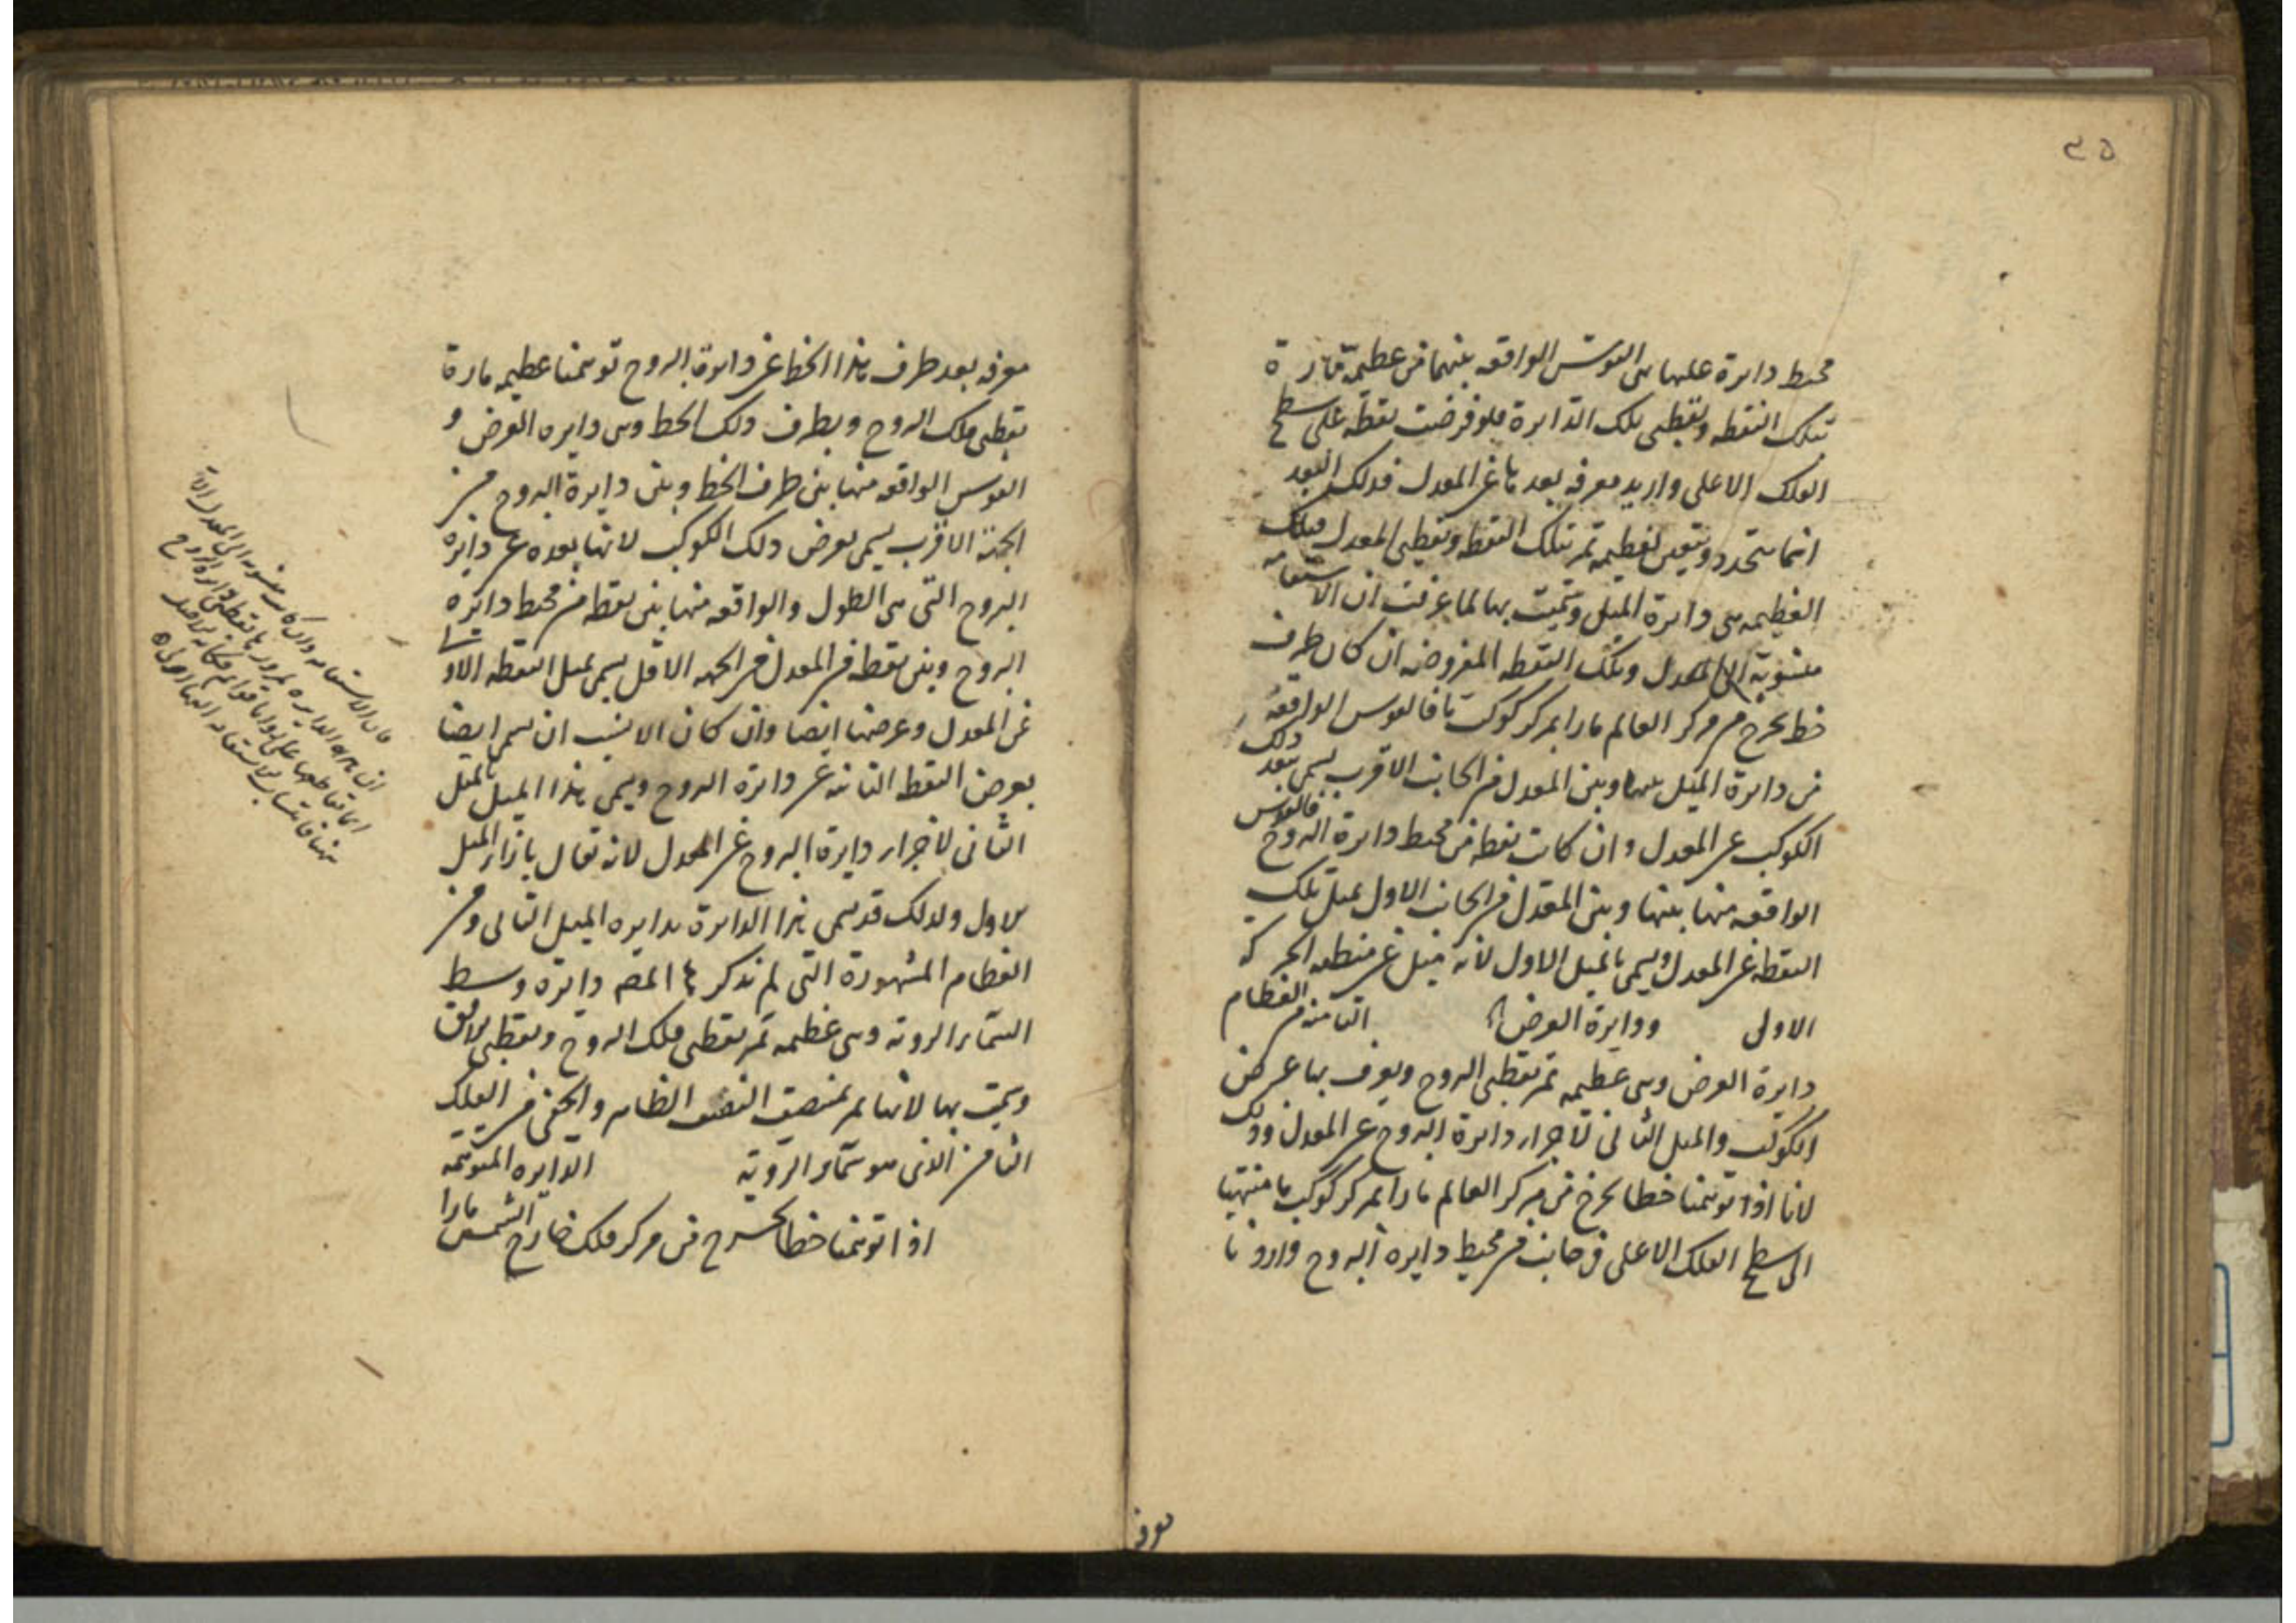 ٣٥
محيط دايرة عليها هى القوس الواقعه بينهما من عظيمة مارة
بتلك النقطه وبقطبى تلك الدايرة فلو فرضت نقطة على سطح
الفلك الاعلى واريد معرفه بعد ما عن المعدل فذلك البعد
انما يتحدد ويتعين بعظيمه تمر بتلك النقطه وبقطبى المعدل فتلك
العظيمه هى دايرة الميل وسميت بها لما عرفت ان الاستقامه
منسوبة الى المعدل وتلك النقطه المفروضه ان كان طرف
خط يخرج من مركز العالم مارا بمركز كوكب ما فالقوس الواقعة
من دايرة الميل بينها وبين المعدل من الجانب الاقرب يسمى ببعد ذلك
الكوكب عن المعدل وان كانت نقطه من محيط دايرة البروج فالقوس
الواقعه منها بينها وبين المعدل من الجانب الاول بميل تلك
النقطه عن المعدل ويسمى بالميل الاول لانه ميل عن منطقه الحركه
الاولى ودايرة العرض الثامنه من العظام
دايرة العرض وهى عظيمه تمر بقطبى البروج ويعرف بها عرض
الكوكب والميل الثانى لاجزاء دايرة البروج عن المعدل وذلك
لانا اذا توهمنا خطا يخرج من مركز العالم مارا بمركز كوكب ما منتهيا
الى سطح الفلك الاعلى فى جانب من محيط دايرة البروج واردنا
معرفه
معرفه بعد طرف هذا الخط عن دايرة البروج توهمنا عظيمه مارة
بقطبى فلك البروج وبطرف ذلك الخط وهى دايره العرض و
القوس الواقعه منها بين طرف الخط وبين دايرة البروج من
الجهة الاقرب يسمى بعرض ذلك الكوكب لانها بعده عن دايرة
البروج التى هى الطول والواقعه منها بين نقطه من محيط دايره
البروج وبين نقطه من المعدل من الجهه الاقل يسمى بميل النقطه الاولى
عن المعدل وعرضها ايضا وان كان الانسب ان يسمى ايضا
بعرض النقطه الثانيه عن دايرة البروج ويسمى هذا الميل بالميل
الثانى لاجزاء دايرة البروج عن المعدل لانه يقال بازاء الميل
الاول ولذلك قد يسمى هذا الدايرة بدايره الميل الثانى ومن
العظام المشهورة التى لم تذكر المصه دايره وسط
السماء الرويه وهى عظيمه تمر بقطبى فلك البروج وبقطبى الافق
وسميت بها لانها تمر بمنصف النصف الظاهر والخفى من الفلك
الثامن الذى هو سماء الروية الدايره المتوهمه
اذا توهمنا خطا يخرج من مركز فلك خارج الشمس مارا